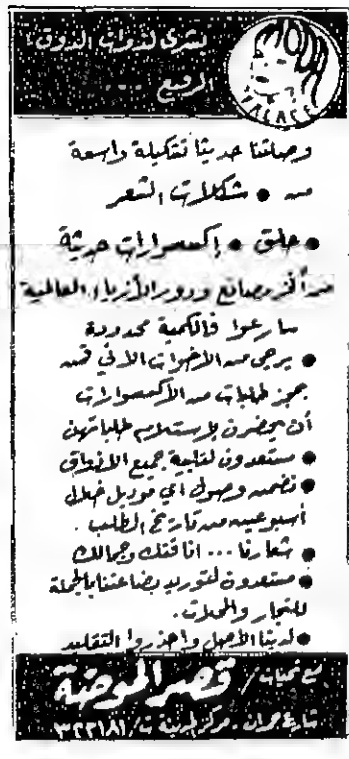 بشرى لذوات الذوق
الرفيع ....
PALACE
وصلتنا حديثا تشكيلة واسعة
من • شكلات الشعر
• حلق • إكسسوارات حديثة
من أفخر مصانع ودور الأزياء العالمية
سارعوا فالكمية محدودة
• يرجى من الأخوات الاتي قمن
بحجز طلبات من الأكسسوارات
أن يحضرن لإستلام طلباتهن
• مستعدون لتلبية جميع الاذواق
• نضمن وصول أي موديل خلال
أسبوعين من تاريخ الطلب .
• شعارنا ... اناقتك وجمالك
• مستعدون لتوريد بضاعتنا بالجملة
للتجار والمحلات .
• لدينا الأصل واحذروا التقليد
مع تحيات / قصر الموضة
شارع حمدان - مركز المدينة ت/ ٣٢٢١٨١